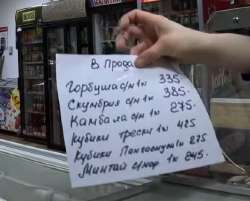 В Прода
Горбуша с/м 1к 335
Скумбрия с/м 1к 385-
Камбала с/м 1к 275-
Кубики трески 1к 425
Кубики Пангасиуса 1к 275
Минтай с/мор 1к 245-